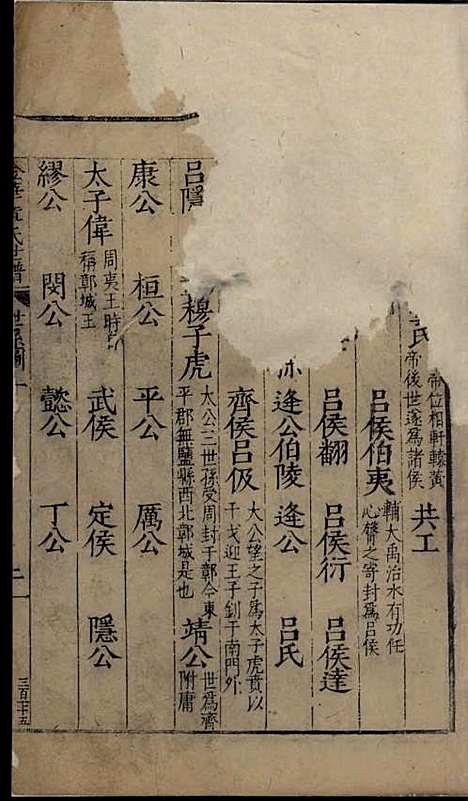 氏 帝位相軒轅黃帝後世遂為諸侯 共工
呂侯伯夷 輔大禹治水有功任心膂之寄封為呂侯
呂侯翻 呂侯衍 呂侯達
逄公伯陵 逄公 呂氏
齊侯呂伋 大公望之子為太子虎賁以干戈迎王子釗于南門外
呂 穆子虎 太公三世孫受周封于鄣今東平郡無鹽縣西北鄣城是也 靖公 世為齊附庸
康公 桓公 平公 厲公
太子偉 周夷王時稱鄣城王 武侯 定侯 隱公
繆公 閔公 懿公 丁公
氏世譜 世系圖 二 三百二十五